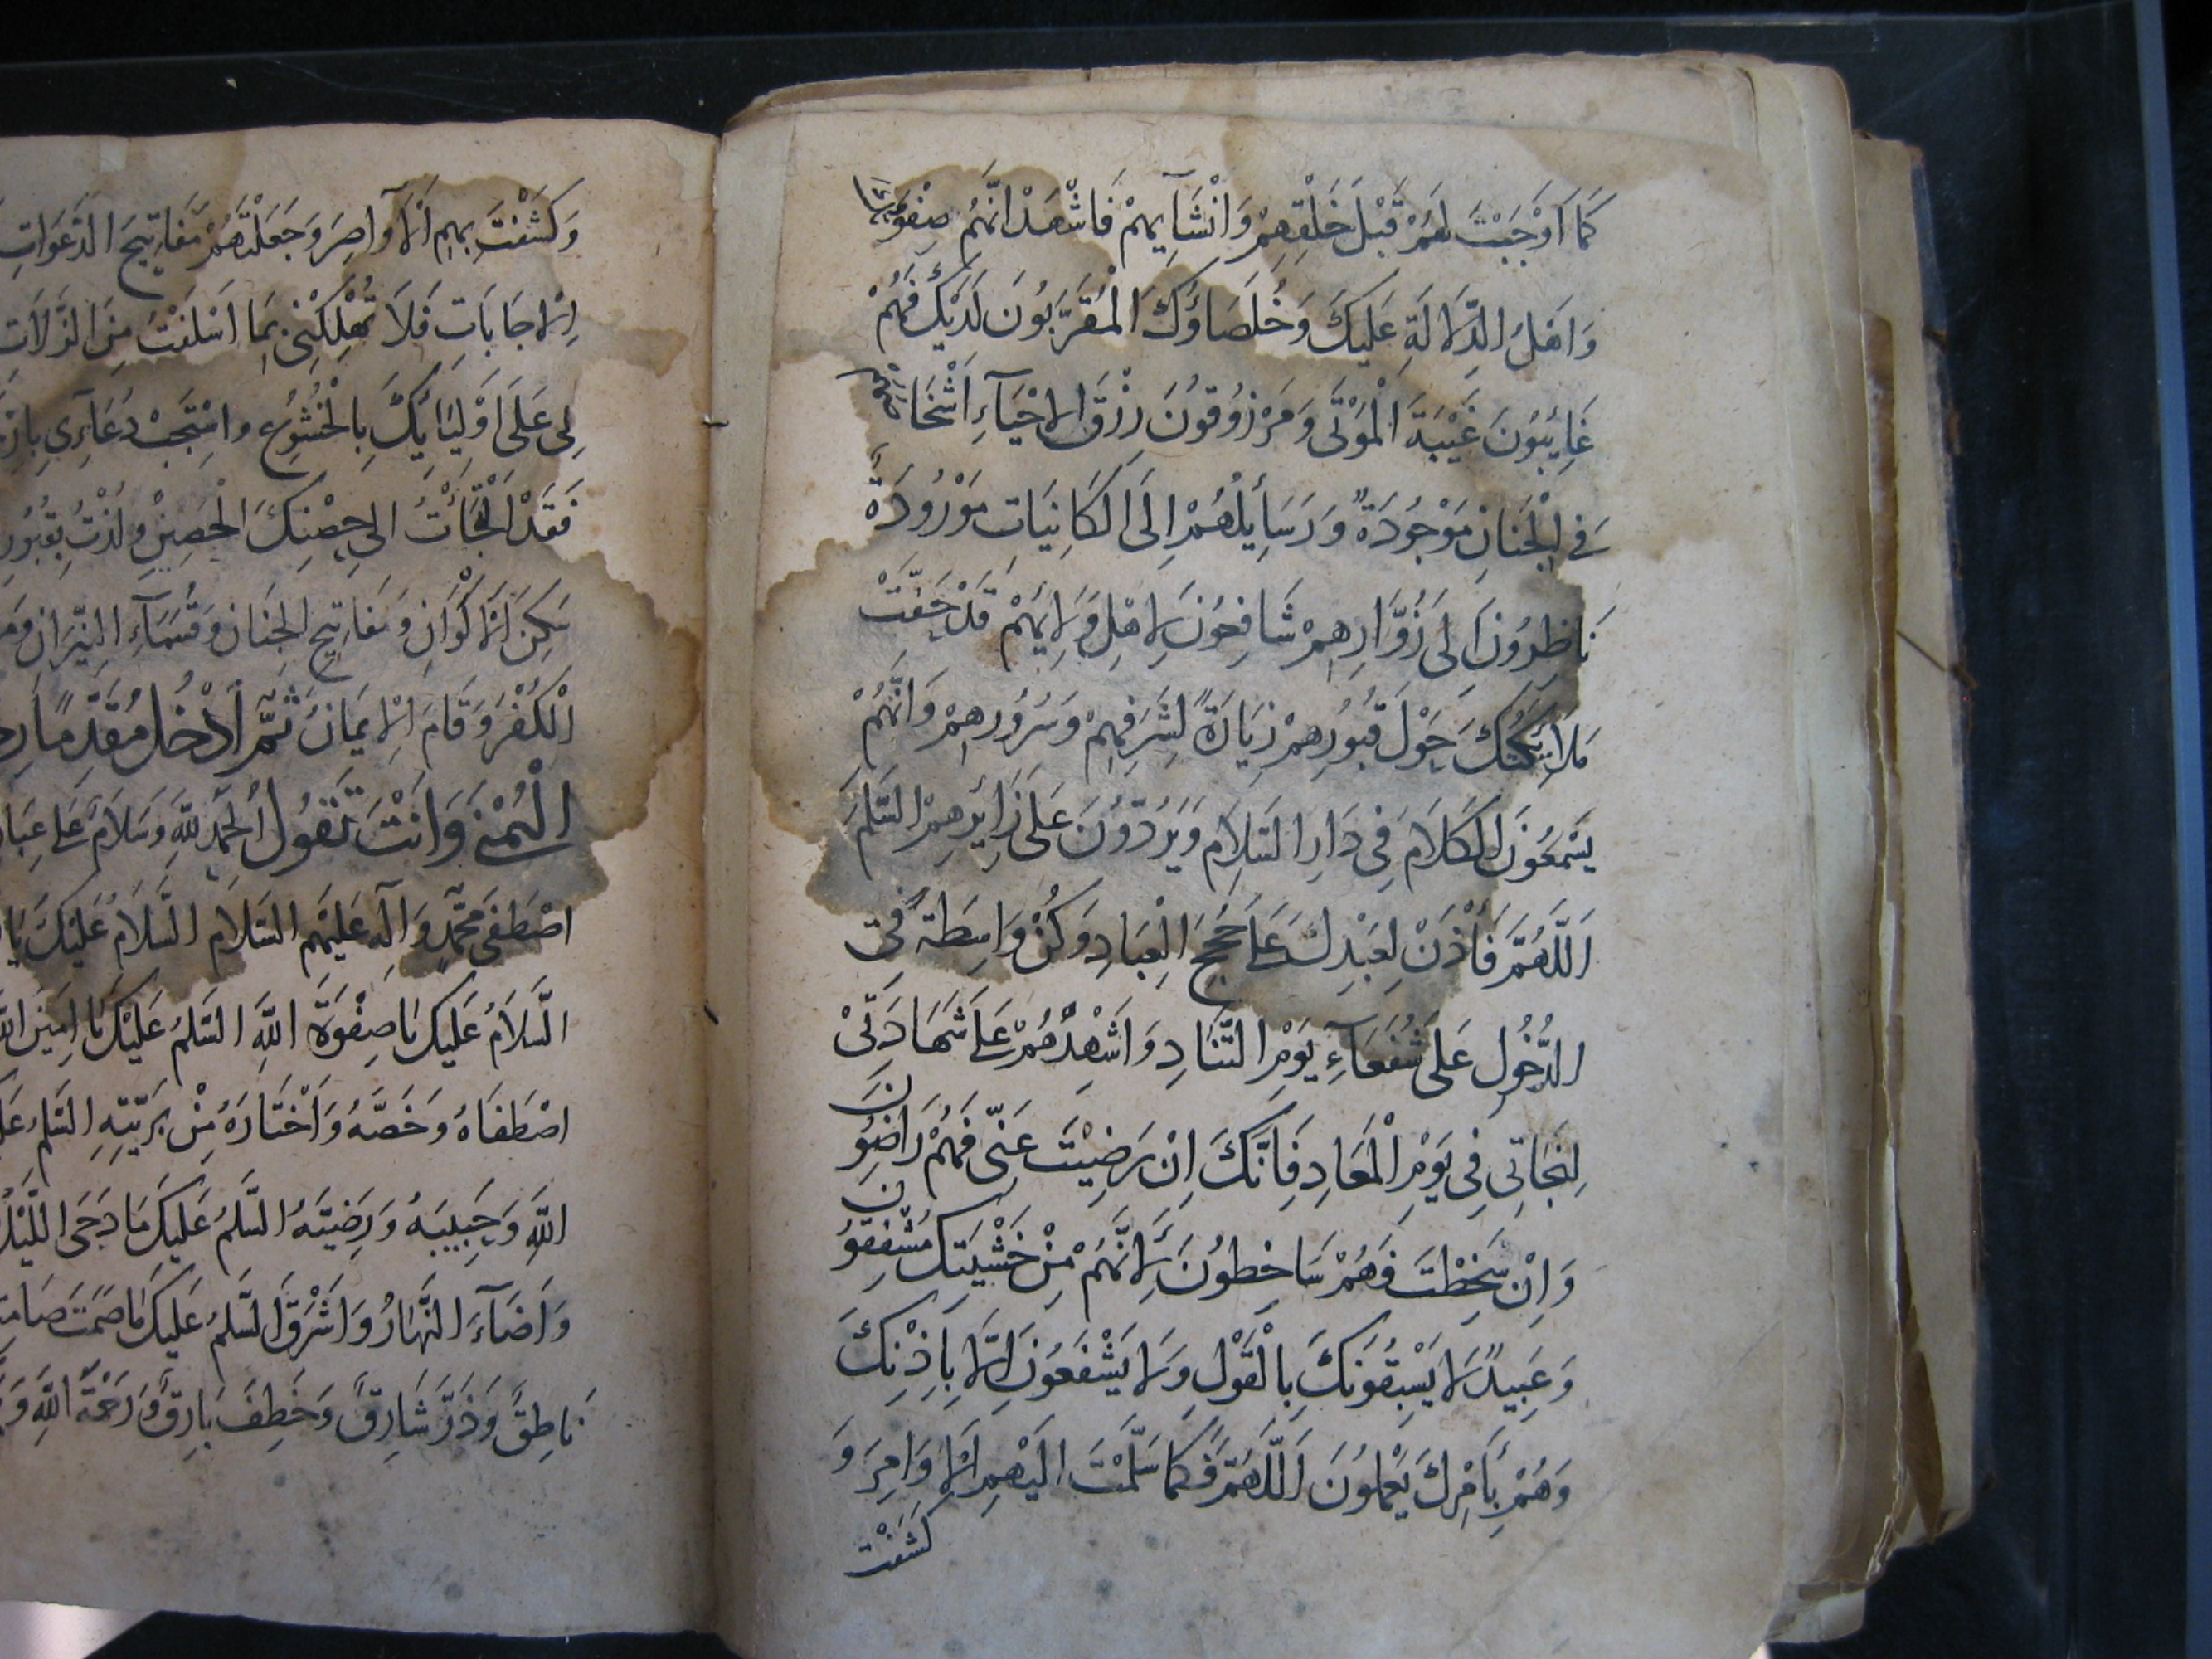 كَمَا اَوْجَبْتَ لَهُمْ قَبْلَ خَلْقِهِمْ وَاِنْشَآيِهِمْ فَاَشْهَدُ اَنَّهُمْ صِفْوَتُكَ
وَاَهْلُ الدِّلَالَةِ عَلَيْكَ وَخُلَصَاؤُكَ الْمُقَرَّبُونَ لَدَيْكَ فَهُمْ
غَائِبُونَ غَيْبَةَ الْمَوْتَى وَمَرْزُوقُونَ رِزْقَ الْاَحْيَآءِ اَشْخَاصُهُمْ
فِي الْجَنَانِ مَوْجُودَةٌ وَرَسَائِلُهُمْ اِلَى الكَائِنَات مَوْرُودَةٌ
نَاظِرُونَ اِلَى زُوَّارِهِمْ شَافِعُونَ لِاَهْلِ وَلَايَتِهِمْ قَدْ حَفَّتْ
مَلَائِكَتُكَ حَوْلَ قُبُورِهِمْ زِيَادَةً لِشَرَفِهِمْ وَسُرُورِهِمْ وَاَنَّهُمْ
يَسْمَعُونَ الْكَلَامَ فِي دَارِ السَّلَامِ وَيَرُدُّونَ عَلَى زَائِرِهِمْ السَّلَمَ
اَللَّهُمَّ فَأْذَنْ لِعَبْدِكَ عَلَى حُجَجِ الْعِبَادِ وَكُنْ وَاسِطَةً فِي
الدُّخُولِ عَلَى شُفَعَآءِ يَوْمِ التَّنَادِ وَاَشْهِدْهُمْ عَلَى شَهَادَتِيْ
لِنَجَاتِي فِي يَوْمِ الْمَعَادِ فَاِنَّكَ اِنْ رَضِيْتَ عَنِّي فَهُمْ رَاضُونَ
وَاِنْ سَخِطْتَ فَهُمْ سَاخِطُونَ لِاَنَّهُمْ مِنْ خَشْيَتِكَ مُشْفِقُونَ
وَعَبِيدٌ لَا يَسْبِقُونَكَ بِالْقَوْلِ وَلَا يَشْفَعُونَ اِلَّا بِاِذْنِكَ
وَهُمْ بِأَمْرِكَ يَعْمَلُونَ اَللَّهُمَّ فَكَمَا سَلَّمْتَ اِلَيْهِمِ الْاَوَامِرَ وَ
كَشَفْتَ
وَكَشَفْتَ بِهِمِ الْاَوَاصِرَ وَجَعَلْتَهُمْ مَفَاتِيحَ الدَّعَوَاتِ
الْاِجَابَاتِ فَلَا تُهْلِكْنِي بِمَا اَسْلَفْتُ مِنَ الزَّلَاتِ
لِي عَلَى اَوْلِيَائِكَ بِالْخُشُوعِ وَاسْتَجِبْ دُعَآءِي
فَقَدْ الْتَجَأْتُ اِلَى حِصْنِكَ الْحَصِينِ وَلُذْتُ بِقُبُورِ
سَكِنَ الْاَكْوَانِ وَمَفَاتِيحِ الْجِنَانِ وَقُسَمَآءِ النِّيْرَانِ
الْكُفْرَ وَقَامَ الْاِيمَانُ ثُمَّ اَدْخُلْ مُقَدِّمًا
الْيُمْنَى وَاَنْتَ تَقُولُ اَلْحَمْدُ لِلَّهِ وَسَلَامٌ عَلَى
اصْطَفَى مُحَمَّدٍ وَآلِهِ عَلَيْهِمُ السَّلَامُ السَّلَامُ عَلَيْكَ يَا
السَّلَامُ عَلَيْكَ يَا صِفْوَةَ اللَّهِ السَّلَمُ عَلَيْكَ يَا اَمِينَ اللَّهِ
اصْطَفَاهُ وَخَصَّهُ وَاَخْتَارَهُ مِنْ بَرِيَّتِهِ السَّلَمُ
اللَّهِ وَحَبِيبَهُ وَرَضِيَّتَهُ السَّلَمُ عَلَيْكَ مَا دَجَى اللَّيْلُ
وَاَضَآءَ النَّهَارُ وَاَشْرَقَ السَّلَمُ عَلَيْكَ مَا صَمَتَ صَامِتٌ
نَاطِقٌ وَذَرَّ شَارِقٌ وَخَطِفَ بَارِقٌ وَرَحْمَةُ اللَّهِ